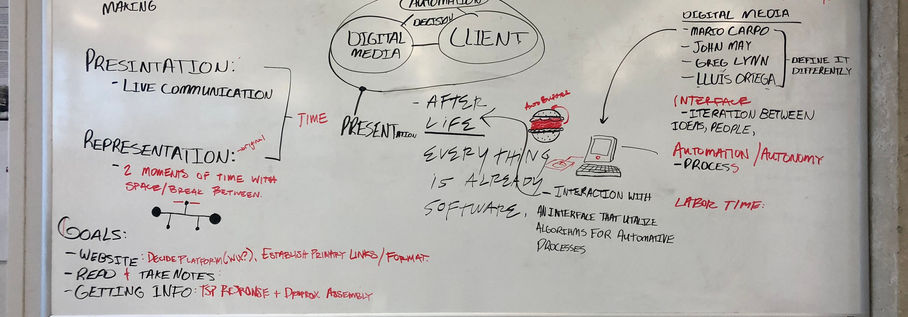 MAKING
AUTOMATION
DECISION
DIGITAL
MEDIA
CLIENT
PRESINTATION:
- LIVE COMMUNICATION
TIME
REPRESENTATION:
- 2 MOMENTS OF TIME WITH
SPACE/BREAK BETWEEN.
PRESENTATION
- AFTER
LIFE
EVERYTHING
IS ALREADY
SOFTWARE.
- INTERACTION WITH
AN INTERFACE THAT UTALIZE
ALGORITHMS FOR AUTOMATIVE
PROCESSES
DIGITAL MEDIA
- MARIO CARPO
- JOHN MAY
- GREG LYNN
- LLUIS ORTEGA
DEFINE IT
DIFFERENTLY
INTERFACE
- ITERATION BETWEEN
IDEAS, PEOPLE,
AUTOMATION/AUTONOMY
- PROCESS
LABOR TIME:
GOALS:
- WEBSITE: DECIDE PLATFORM (WIX?), ESTABLISH PRIMARY LINKS/FORMAT.
- READ + TAKE NOTES:
- GETTING INFO: + DROPBOX ASSEMBLY